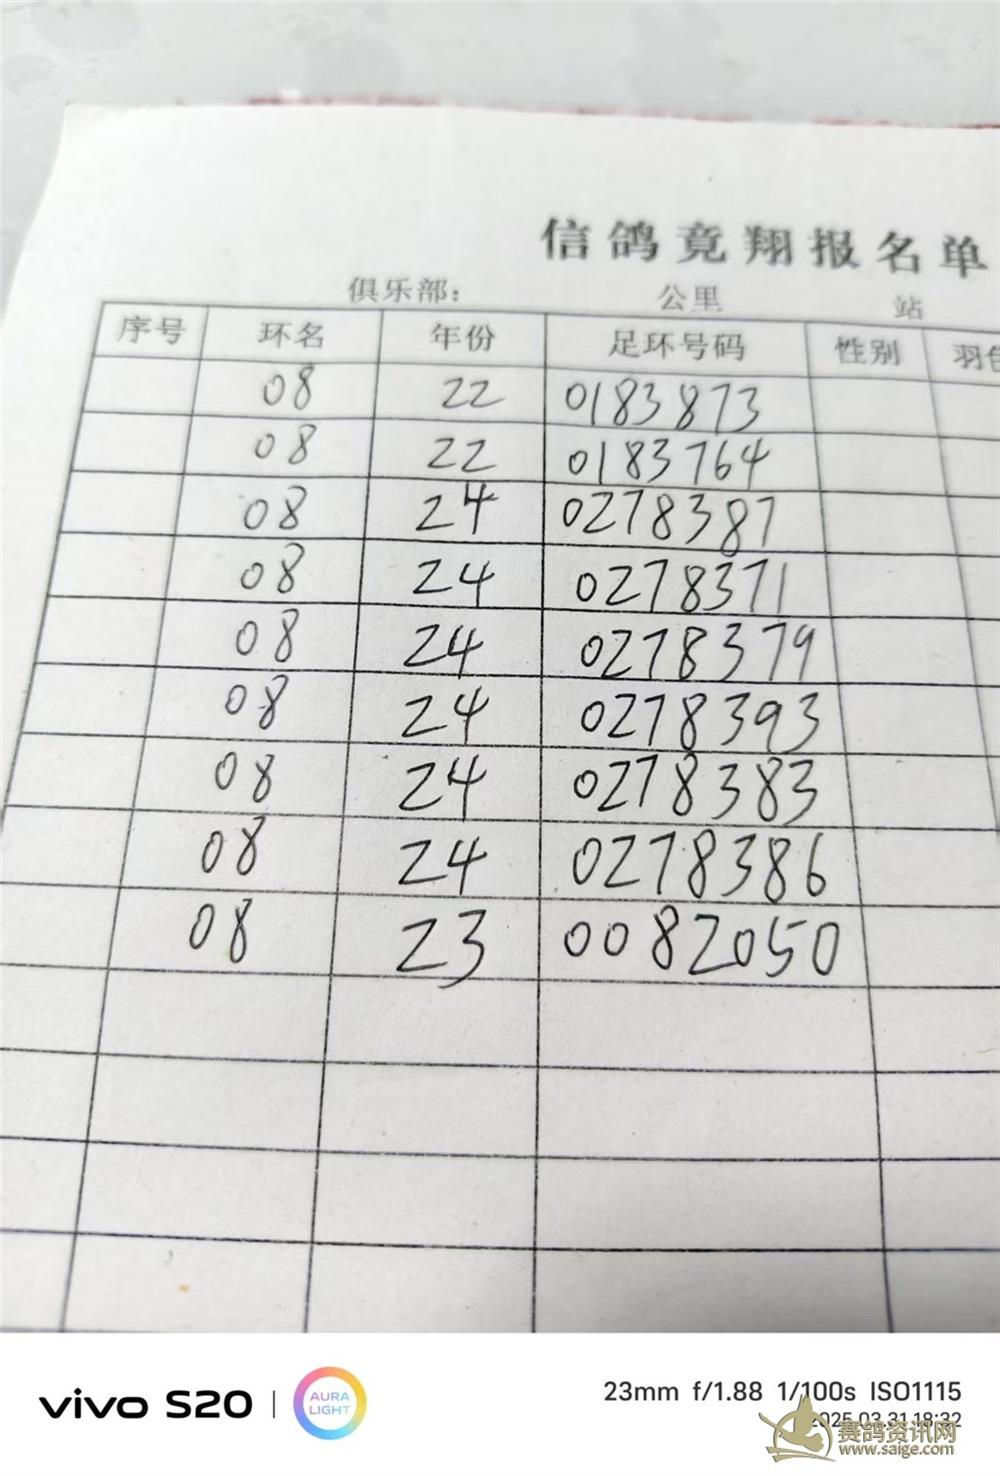 信鸽竟翔报名单
俱乐部： 公里 站
序号 环名 年份 足环号码 性别 羽色
08 22 0183873
08 22 0183764
08 24 0278387
08 24 0278371
08 24 0278379
08 24 0278393
08 24 0278383
08 24 0278386
08 23 0082050
vivo S20 | AURA LIGHT
23mm f/1.88 1/100s ISO1115
2025.03.31 18:32
赛鸽资讯网
www.saige.com